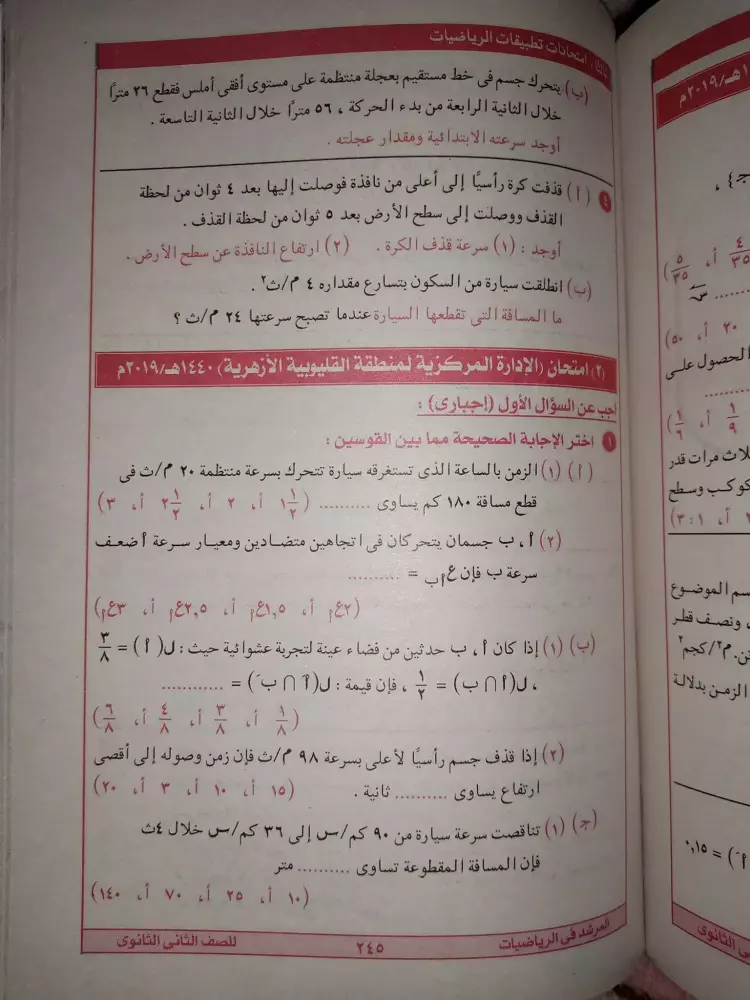 ثالثًا : امتحانات تطبيقات الرياضيات
(ب) يتحرك جسم فى خط مستقيم بعجلة منتظمة على مستوى أفقى أملس فقطع ٢٦ مترًا
خلال الثانية الرابعة من بدء الحركة ، ٥٦ مترًا خلال الثانية التاسعة .
أوجد سرعته الابتدائية ومقدار عجلته .
٤ (أ) قذفت كرة رأسيًا إلى أعلى من نافذة فوصلت إليها بعد ٤ ثوان من لحظة
القذف ووصلت إلى سطح الأرض بعد ٥ ثوان من لحظة القذف .
أوجد : (١) سرعة قذف الكرة . (٢) ارتفاع النافذة عن سطح الأرض .
(ب) انطلقت سيارة من السكون بتسارع مقداره ٤ م/ث٢ .
ما المسافة التى تقطعها السيارة عندما تصبح سرعتها ٢٤ م/ث ؟
(٢) امتحان (الإدارة المركزية لمنطقة القليوبية الأزهرية) ١٤٤٠هـ/٢٠١٩م
أجب عن السؤال الأول (إجبارى) :
١ اختر الإجابة الصحيحة مما بين القوسين :
(أ) (١) الزمن بالساعة الذى تستغرقه سيارة تتحرك بسرعة منتظمة ٢٠ م/ث فى
قطع مسافة ١٨٠ كم يساوى .......... (١ ١/٢ أ، ٢ أ، ٢ ١/٢ أ، ٣)
(٢) أ ، ب جسمان يتحركان فى اتجاهين متضادين ومعيار سرعة أ ضعف
سرعة ب فإن ع أب = ..........
(٢ع أ أ، ١,٥ع أ أ، ٢,٥ع أ أ، ٣ع أ)
(ب) (١) إذا كان أ ، ب حدثين من فضاء عينة لتجربة عشوائية حيث : ل(أَ) = ٣/٨
، ل(أ ∩ ب) = ١/٢ ، فإن قيمة : ل(أ ∩ بَ) = ............
(١/٨ أ، ٣/٨ أ، ٤/٨ أ، ٦/٨)
(٢) إذا قذف جسم رأسيًا لأعلى بسرعة ٩٨ م/ث فإن زمن وصوله إلى أقصى
ارتفاع يساوى .......... ثانية . (١٥ أ، ١٠ أ، ٣ أ، ٢٠)
(جـ) (١) تناقصت سرعة سيارة من ٩٠ كم/س إلى ٣٦ كم/س خلال ٤ث
فإن المسافة المقطوعة تساوى .......... متر
(١٠ أ، ٢٥ أ، ٧٠ أ، ١٤٠)
المرشد فى الرياضيات ٢٤٥ للصف الثانى الثانوى
١هـ/٢٠١٩م
جـ} ،
٤/٣٥ أ، ٥/٣٥)
٢٠ أ، ٥٠)
الحصول على
١/٩ أ، ١/٦)
لاث مرات قدر
كوكب وسطح
أ، ٣:١)
سم الموضوع
، ونصف قطر
تن.م٢/كجم٢
الزمن بدلالة
أَ) = ٠,١٥
انى الثانوى